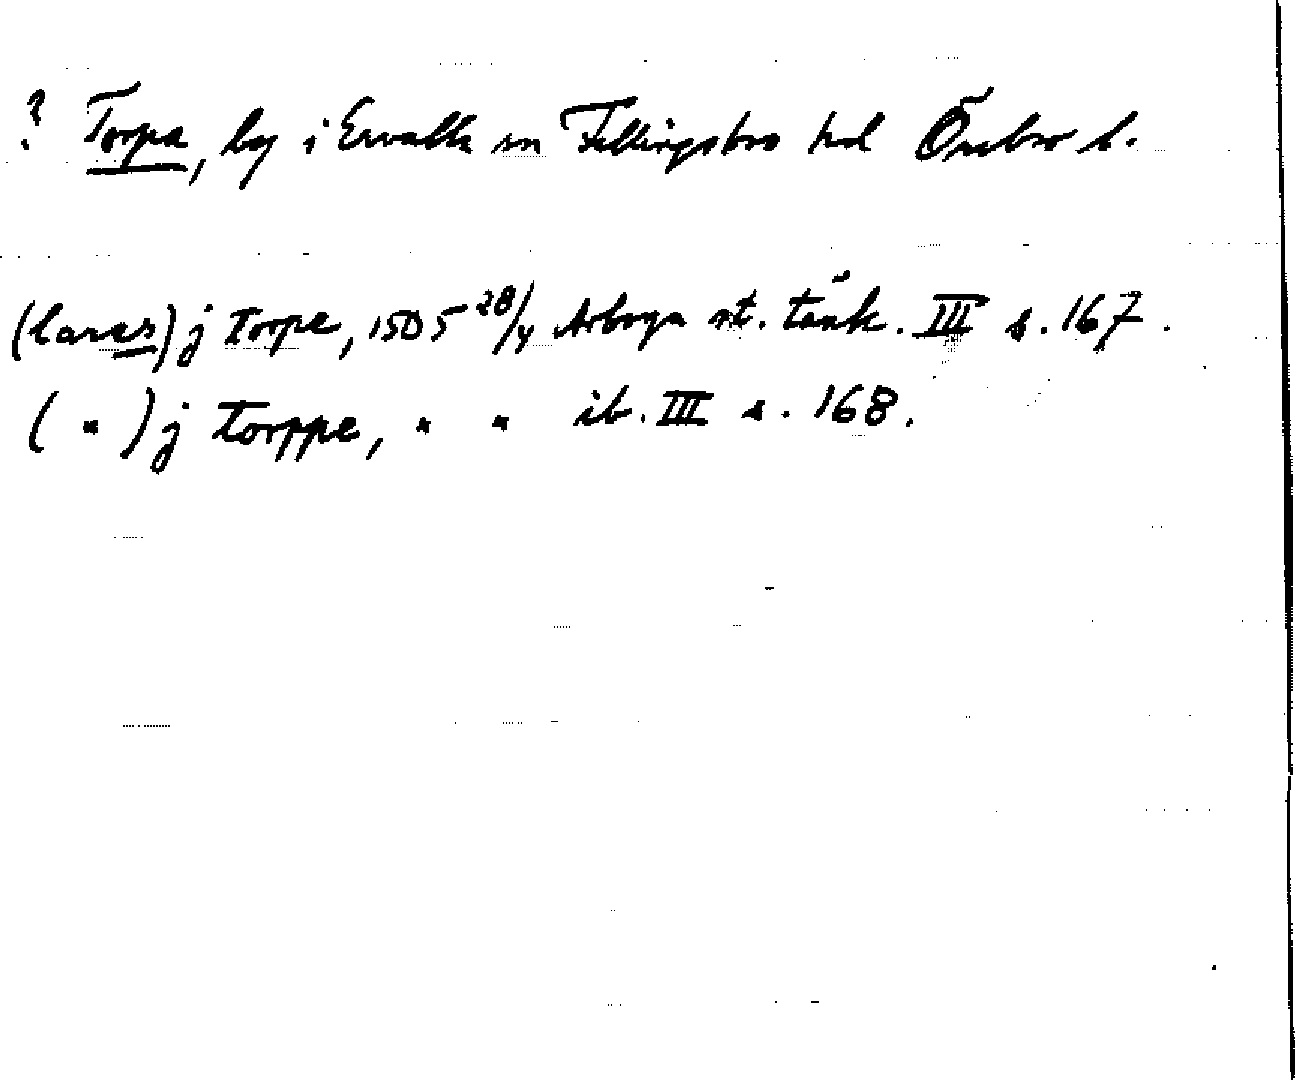 ? Torpa, by i Ervalla sn Fellingsbro hd Örebro l.
(lares) j torpe, 1505 28/4 Arboga st. tänk. III s. 167.
( " ) j torppe, " " ib. III s. 168.